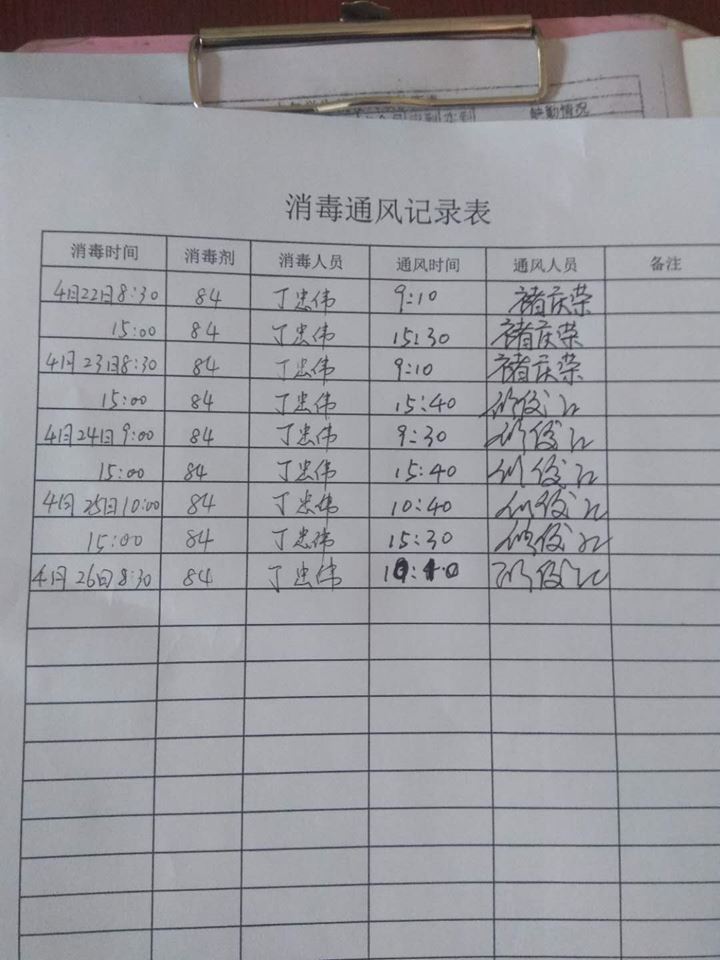 缺勤情况
消毒通风记录表
消毒时间 消毒剂 消毒人员 通风时间 通风人员 备注
4月22日8:30 84 丁忠伟 9:10 褚庆荣
15:00 84 丁忠伟 15:30 褚庆荣
4月23日8:30 84 丁忠伟 9:10 褚庆荣
15:00 84 丁忠伟 15:40
4月24日9:00 84 丁忠伟 9:30
15:00 84 丁忠伟 15:40
4月25日10:00 84 丁忠伟 10:40
15:00 84 丁忠伟 15:30
4月26日8:30 84 丁忠伟